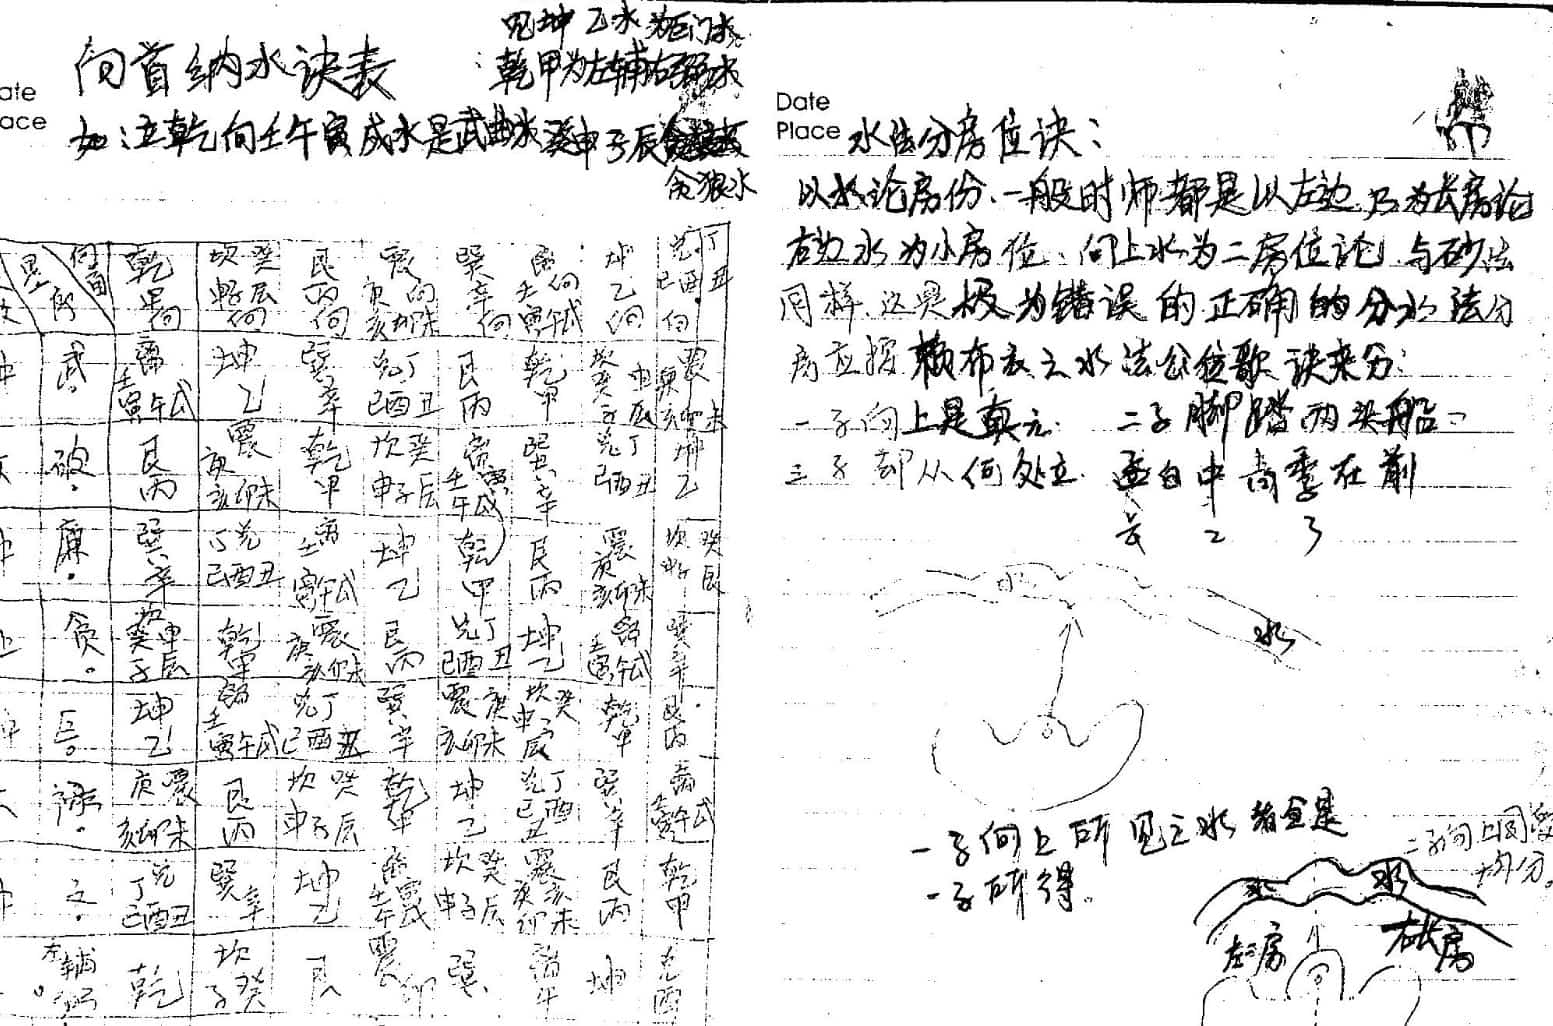 兜坤乙水为巨门水
向首纳水诀表
:乾甲为左辅右弼水
ate
ace
如:立乾向壬午寅戌水是武曲水癸申子辰
贪狼水
向首
星
乾甲向
坎癸申子辰向
艮丙向
震向庚亥卯未
巽辛向
离向壬寅午戌
坤乙向
兑丁巳酉丑向
武.
离壬寅午戌
坤乙
巽辛
兑丁巳酉丑
艮丙
乾甲
坎癸申子辰
震庚亥卯未
破.
艮丙
震庚亥卯未
乾甲
坎癸申子辰
离壬寅午戌
巽辛
兑丁巳酉丑
坤乙
廉.
巽辛
兑丁巳酉丑
离壬寅午戌
坤乙
乾甲
艮丙
震庚亥卯未
坎癸申子辰
贪.
坎癸申子辰
乾甲
震庚亥卯未
艮丙
兑丁巳酉丑
坤乙
离壬寅午戌
巽辛
巨.
坤乙
离壬寅午戌
兑丁巳酉丑
巽辛
震庚亥卯未
坎癸申子辰
乾甲
艮丙
禄.
震庚亥卯未
艮丙
坎癸申子辰
乾甲
坤乙
兑丁巳酉丑
巽辛
离壬寅午戌
文.
兑丁巳酉丑
巽辛
坤乙
离壬寅午戌
坎癸申子辰
震庚亥卯未
艮丙
乾甲
左辅
乾
坎癸子
艮
震卯
巽
离午
坤
兑酉
Date
Place
水法分房位诀:
以水论房份、一般时师都是以左边水为长房论
右边水为小房位、向上水为二房位论、与砂法
同样、这是极为错误的、正确的分水法分
房应按赖布衣之水法公位歌诀来分:
一子向上是真元. 二子脚踏两头船、
三子却从何处立. 孟白中 季在前
长 二 3
水
水
一子向上所见之水者全是
一子所得。
二子向上同
均分。
水
水
左二房
右长房